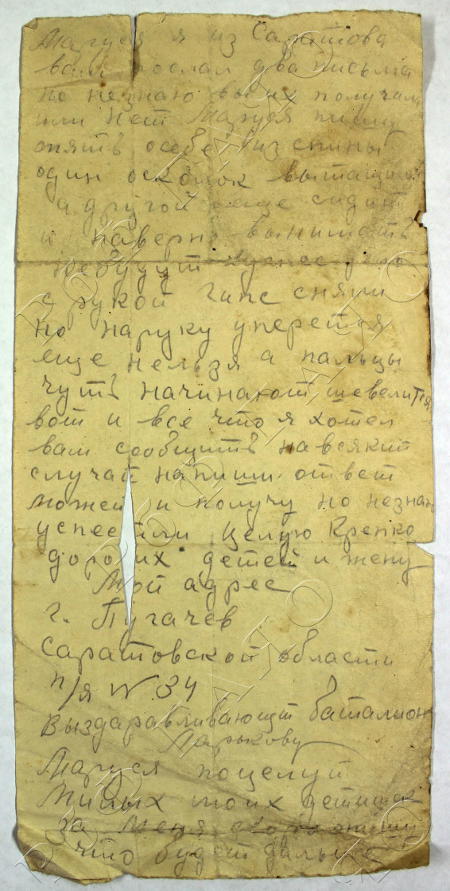 Маруся я из Саратова
вам послал два письма
но незнаю вы их получили
или нет Маруся пишу
опять особе из спины
один осколок вытащили
а другой еще сидит
и наверно вынимать
небудут
с рукой гипс сняли
но наруку уперется
еще нельзя а пальцы
чуть начинают шевелится
вот и все что я хотел
вам сообщить навсякий
случай напиши ответ
может и получу но незнаю
успеет или Целую крепко
дорогих детей и жену
Мой адрес
г. Пугачев
Саратовской области
п/я N 34
Выздаравливающий баталион
Ларькову
Маруся поцелуй
милых моих детишек
за меня
что будет дальше